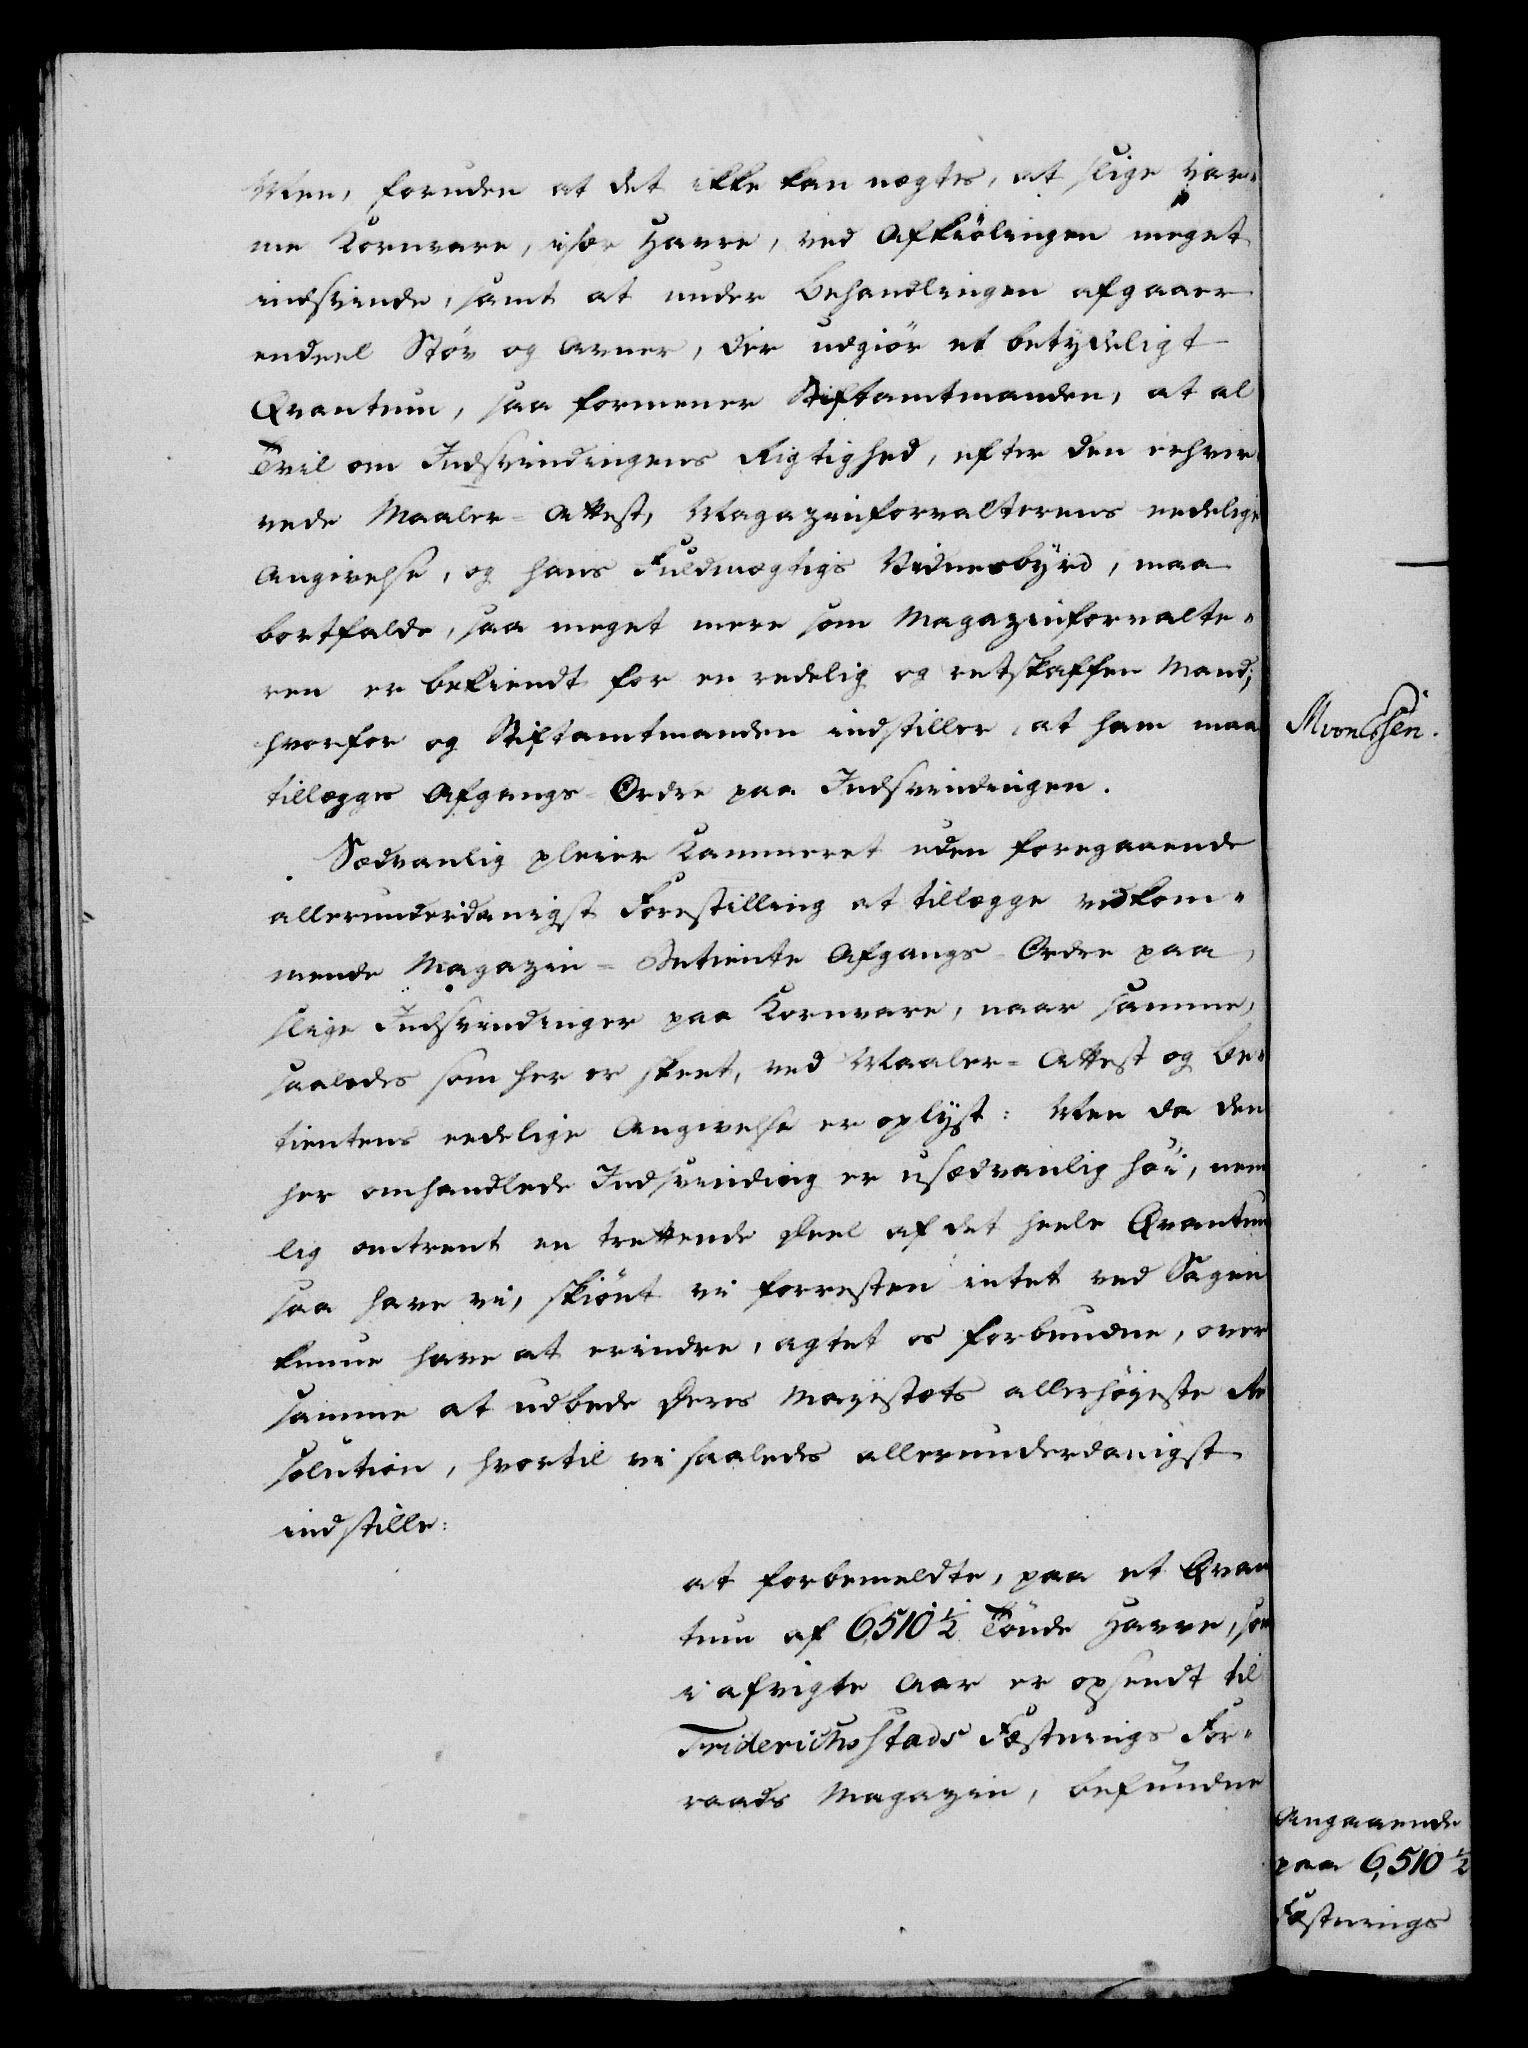 Men, foruden at det ikke kan nægtes, at slige var-
me Kornvare, især Havre, ved Afkiølingen meget
indsvinde, samt at under Behandlingen afgaaer
endeel Støv og Avner, der udgiør et betydeligt
Qvantum, saa formener Stiftamtmanden, at al
Tvil om Indsvindingens Rigtighed, efter den erhver-
vede Maaler-Attest, Magazinforvalterens eedelige
Angivelse, og hans Fuldmægtigs Vidnesbyrd, maa
bortfalde, saa meget mere som Magazinforvalte-
ren er bekiendt for en redelig og retskaffen Mand;
hvorfor og Stiftamtmanden indstiller, at ham maa
tillægges Afgangs-Ordre paa Indsvindingen.
Sædvanlig pleier Kammeret uden foregaaende
allerunderdanigst Forestilling at tillægge vedkom-
mende Magazin-Betiente Afgangs-Ordre paa
slige Indsvindinger paa Kornvare, naar samme,
saaledes som her er skeet, ved Maaler-Attest og Be-
tientens eedelige Angivelse er oplyst: Men da den
her omhandlede Indsvinding er usædvanlig høi, nem
lig omtrent en trettende Deel af det heele Qvantum
saa have vi, skiønt vi forresten intet ved Sagen
kunne have at erindre, agtet os forbundne, over
samme at udbede Deres Majestæts allerhøyeste Re
solution, hvortil vi saaledes allerunderdanigst
indstille:
at forbemeldte, paa et Qvan
tum af 6,510 1/2 Tønde Havre, som
i afvigte Aar er opsendt til
Friderichsstads Fæstnings For-
raads Magazin, befundne
Angaaende
paa 6,510 1/2
Fæstnings